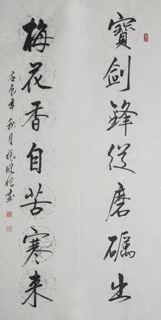 寶劍鋒從磨礪出
梅花香自苦寒来
壬辰年秋月